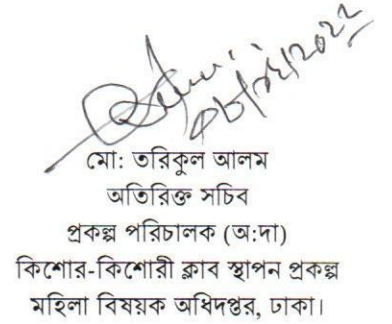 মো: তরিকুল আলম
অতিরিক্ত সচিব
প্রকল্প পরিচালক (অ:দা)
কিশোর-কিশোরী ক্লাব স্থাপন প্রকল্প
মহিলা বিষয়ক অধিদপ্তর, ঢাকা।